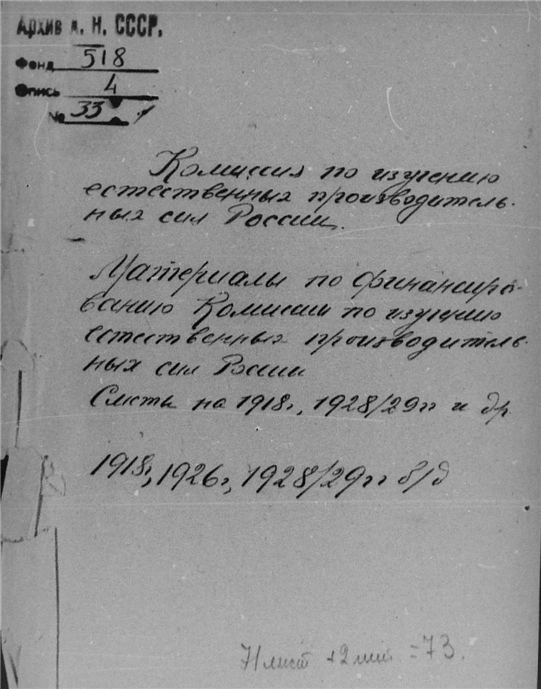 Архив А. Н. СССР.
Фонд 518
Опись 4
№ 33
Комиссия по изучению
естественных производитель-
ных сил России.
Материалы по финансиро-
ванию Комиссии по изучению
естественных производитель-
ных сил России
Сметы на 1918г, 1928/29гг и др
1918г, 1926г, 1928/29гг б/д
71 лист +2 =73.